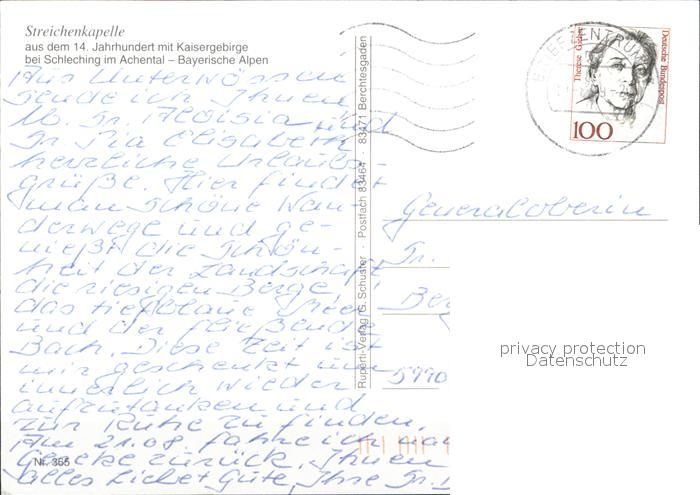 Streichenkapelle
aus dem 14. Jahrhundert mit Kaisergebirge
bei Schleching im Achental – Bayerische Alpen
Aus Unterwössen
sende ich Ihnen
Sr. Aloisia und
Sr. Pia Elisabeth
herzliche Urlaubs-
grüße. Hier findet
man schöne Wan-
derwege und ge-
nießt die Schön-
heit der Landschaft,
die riesigen Berge,
das tiefblaue
und der fließende
Bach. Diese Zeit ist
mir geschenkt um
innerlich wieder
aufzutanken und
zur Ruhe zu finden.
Am 21.08. fahre ich nach
Geseke zurück. Ihnen
alles Liebe + Gute, Ihre Sr.
Nr. 365
Ruperti-Verlag G. Schuster · Postfach 83464 · 83471 Berchtesgaden
BRIEFZENTRUM
Therese Giehse
Deutsche Bundespost
100
Generaloberin
Sr.
Ber
5990
privacy protection
Datenschutz